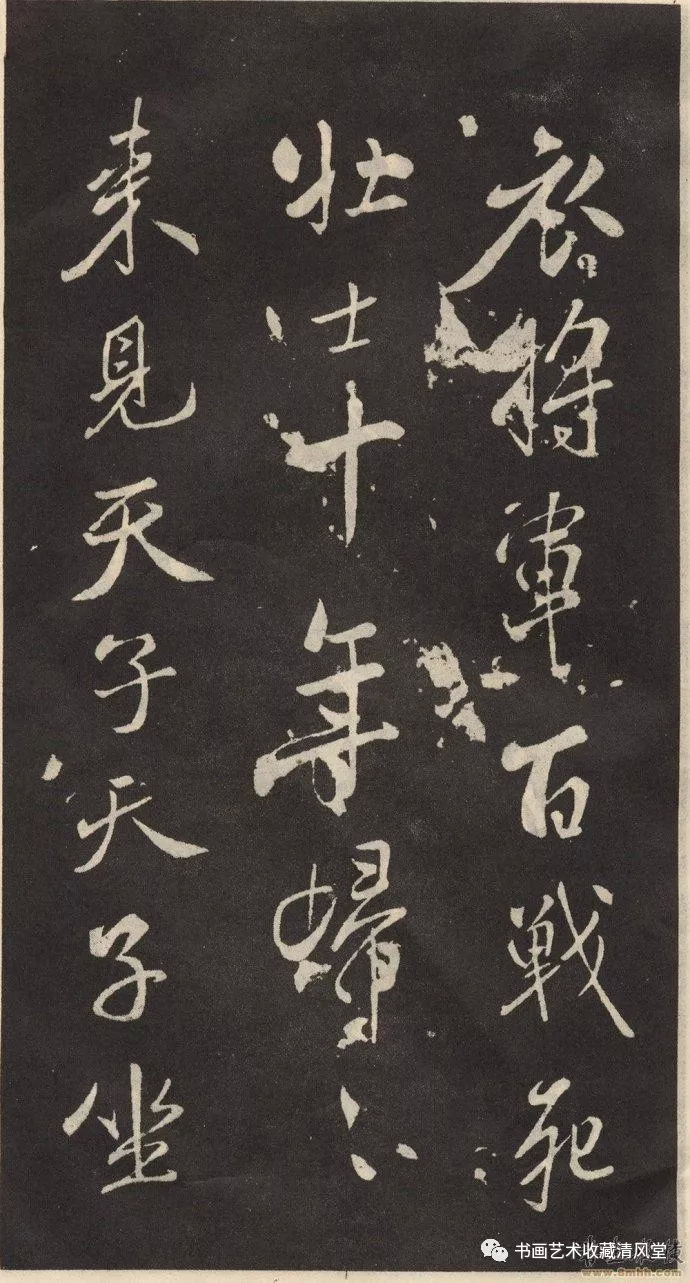 衣将軍百戦死
壮士十年歸〻
来見天子天子坐
书画艺术收藏清风堂